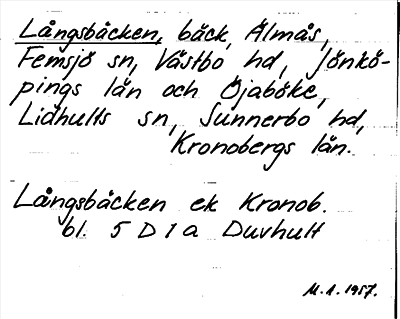 Långsbäcken, bäck, Älmås,
Femsjö sn, Västbo hd, Jönkö-
pings län och Öjaböke,
Lidhults sn, Sunnerbo hd,
Kronobergs län.
Långsbäcken ek Kronob.
bl. 5 D 1 a Duvhult
M.A. 1957.